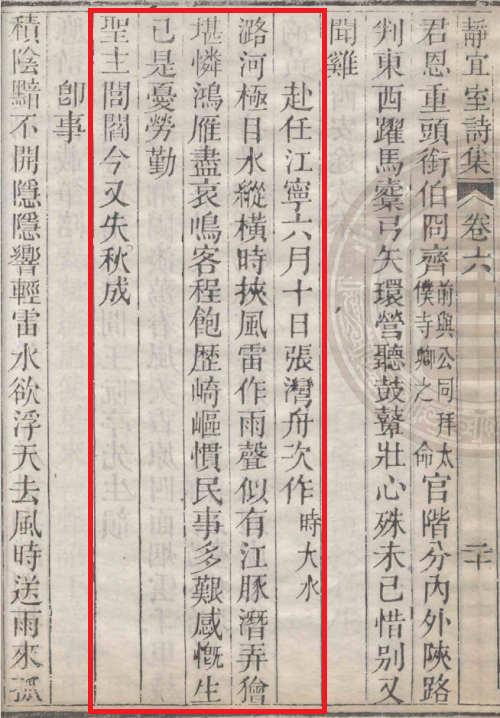 靜宜室詩集 卷六 二十
君恩重頭銜伯冏齊前與公同拜太僕寺卿之命官階分內外陝路
判東西躍馬櫜弓矢環營聽鼓鼙壯心殊未已惜別又
聞雞
赴任江寧六月十日張灣舟次作時大水
潞河極目水縱橫時挾風雷作雨聲似有江豚潛弄獪
堪憐鴻雁盡哀鳴客程飽歷崎嶇慣民事多艱感慨生
已是憂勞勤
聖主閭閻今又失秋成
卽事
積陰黯不開隱隱響輕雷水欲浮天去風時送雨來孤